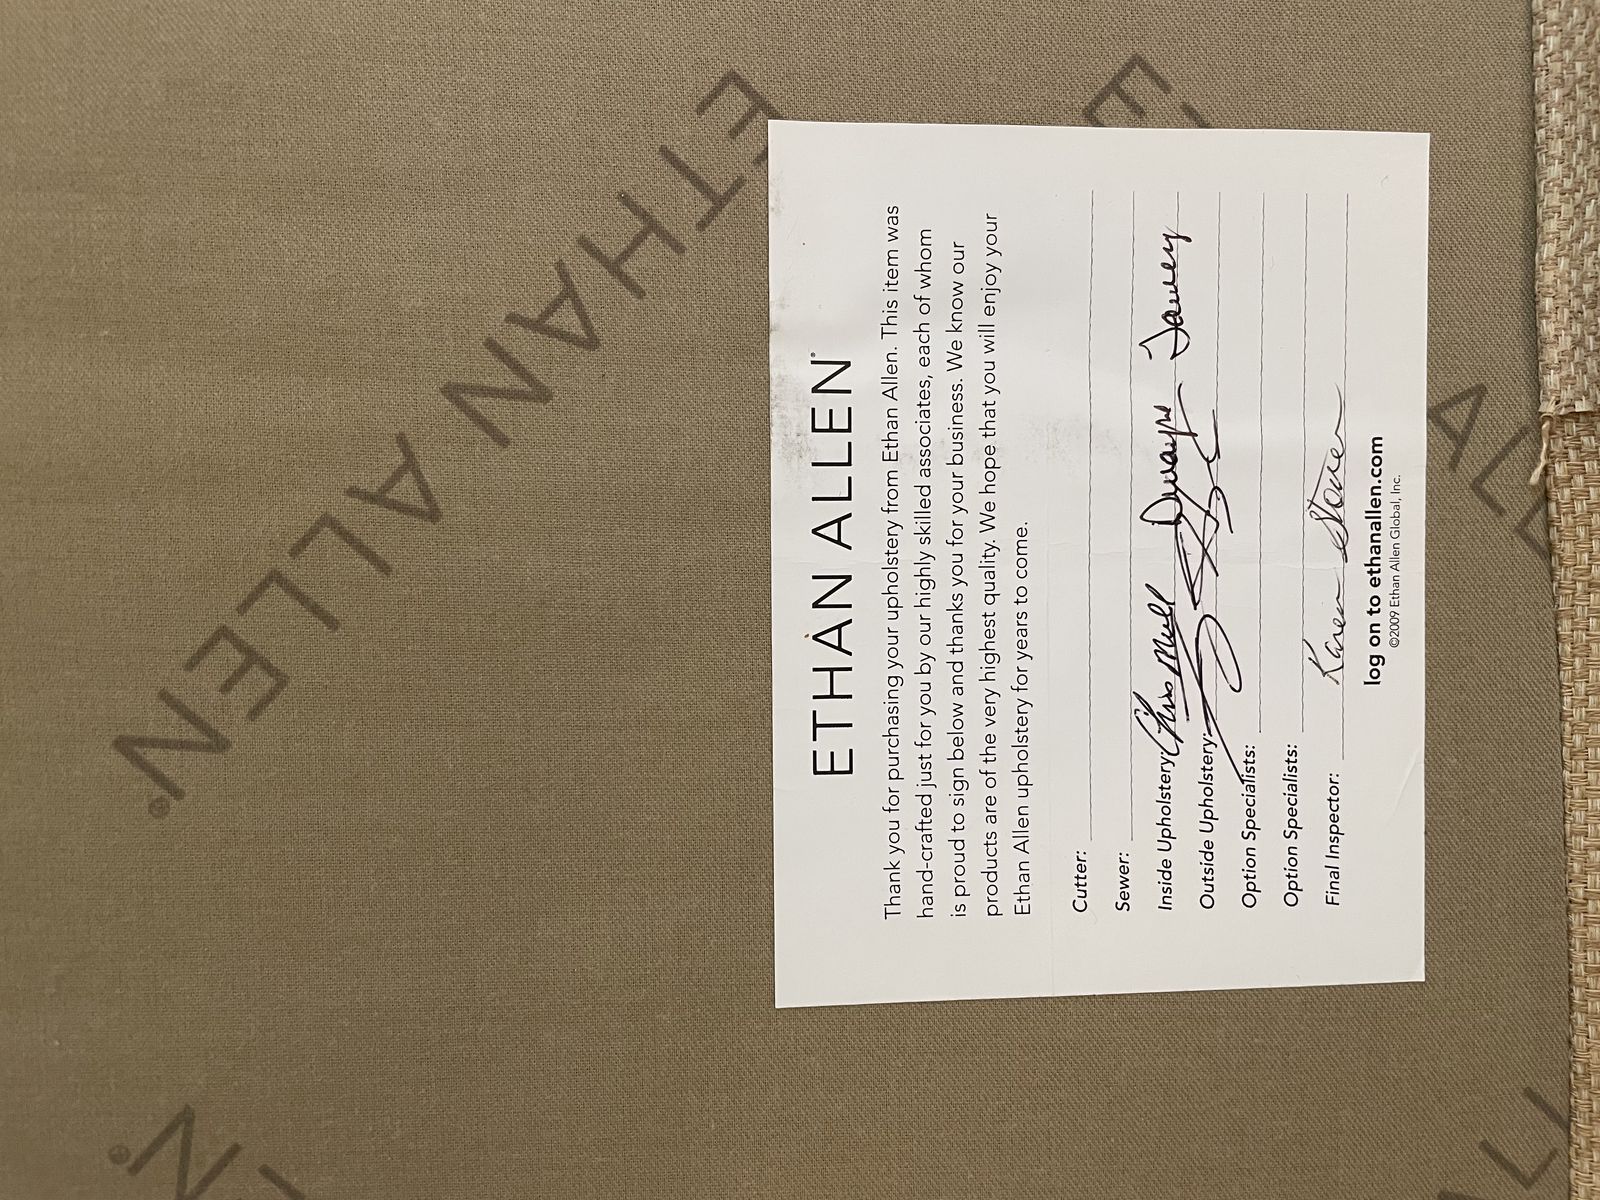 ETHAN ALLEN®
ETHAN ALLEN®
Thank you for purchasing your upholstery from Ethan Allen. This item was
hand-crafted just for you by our highly skilled associates, each of whom
is proud to sign below and thanks you for your business. We know our
products are of the very highest quality. We hope that you will enjoy your
Ethan Allen upholstery for years to come.
Cutter:
Sewer:
Inside Upholstery: Chris Mull Dwayne
Outside Upholstery:
Option Specialists:
Option Specialists:
Final Inspector: Karen Stover
log on to ethanallen.com
©2009 Ethan Allen Global, Inc.